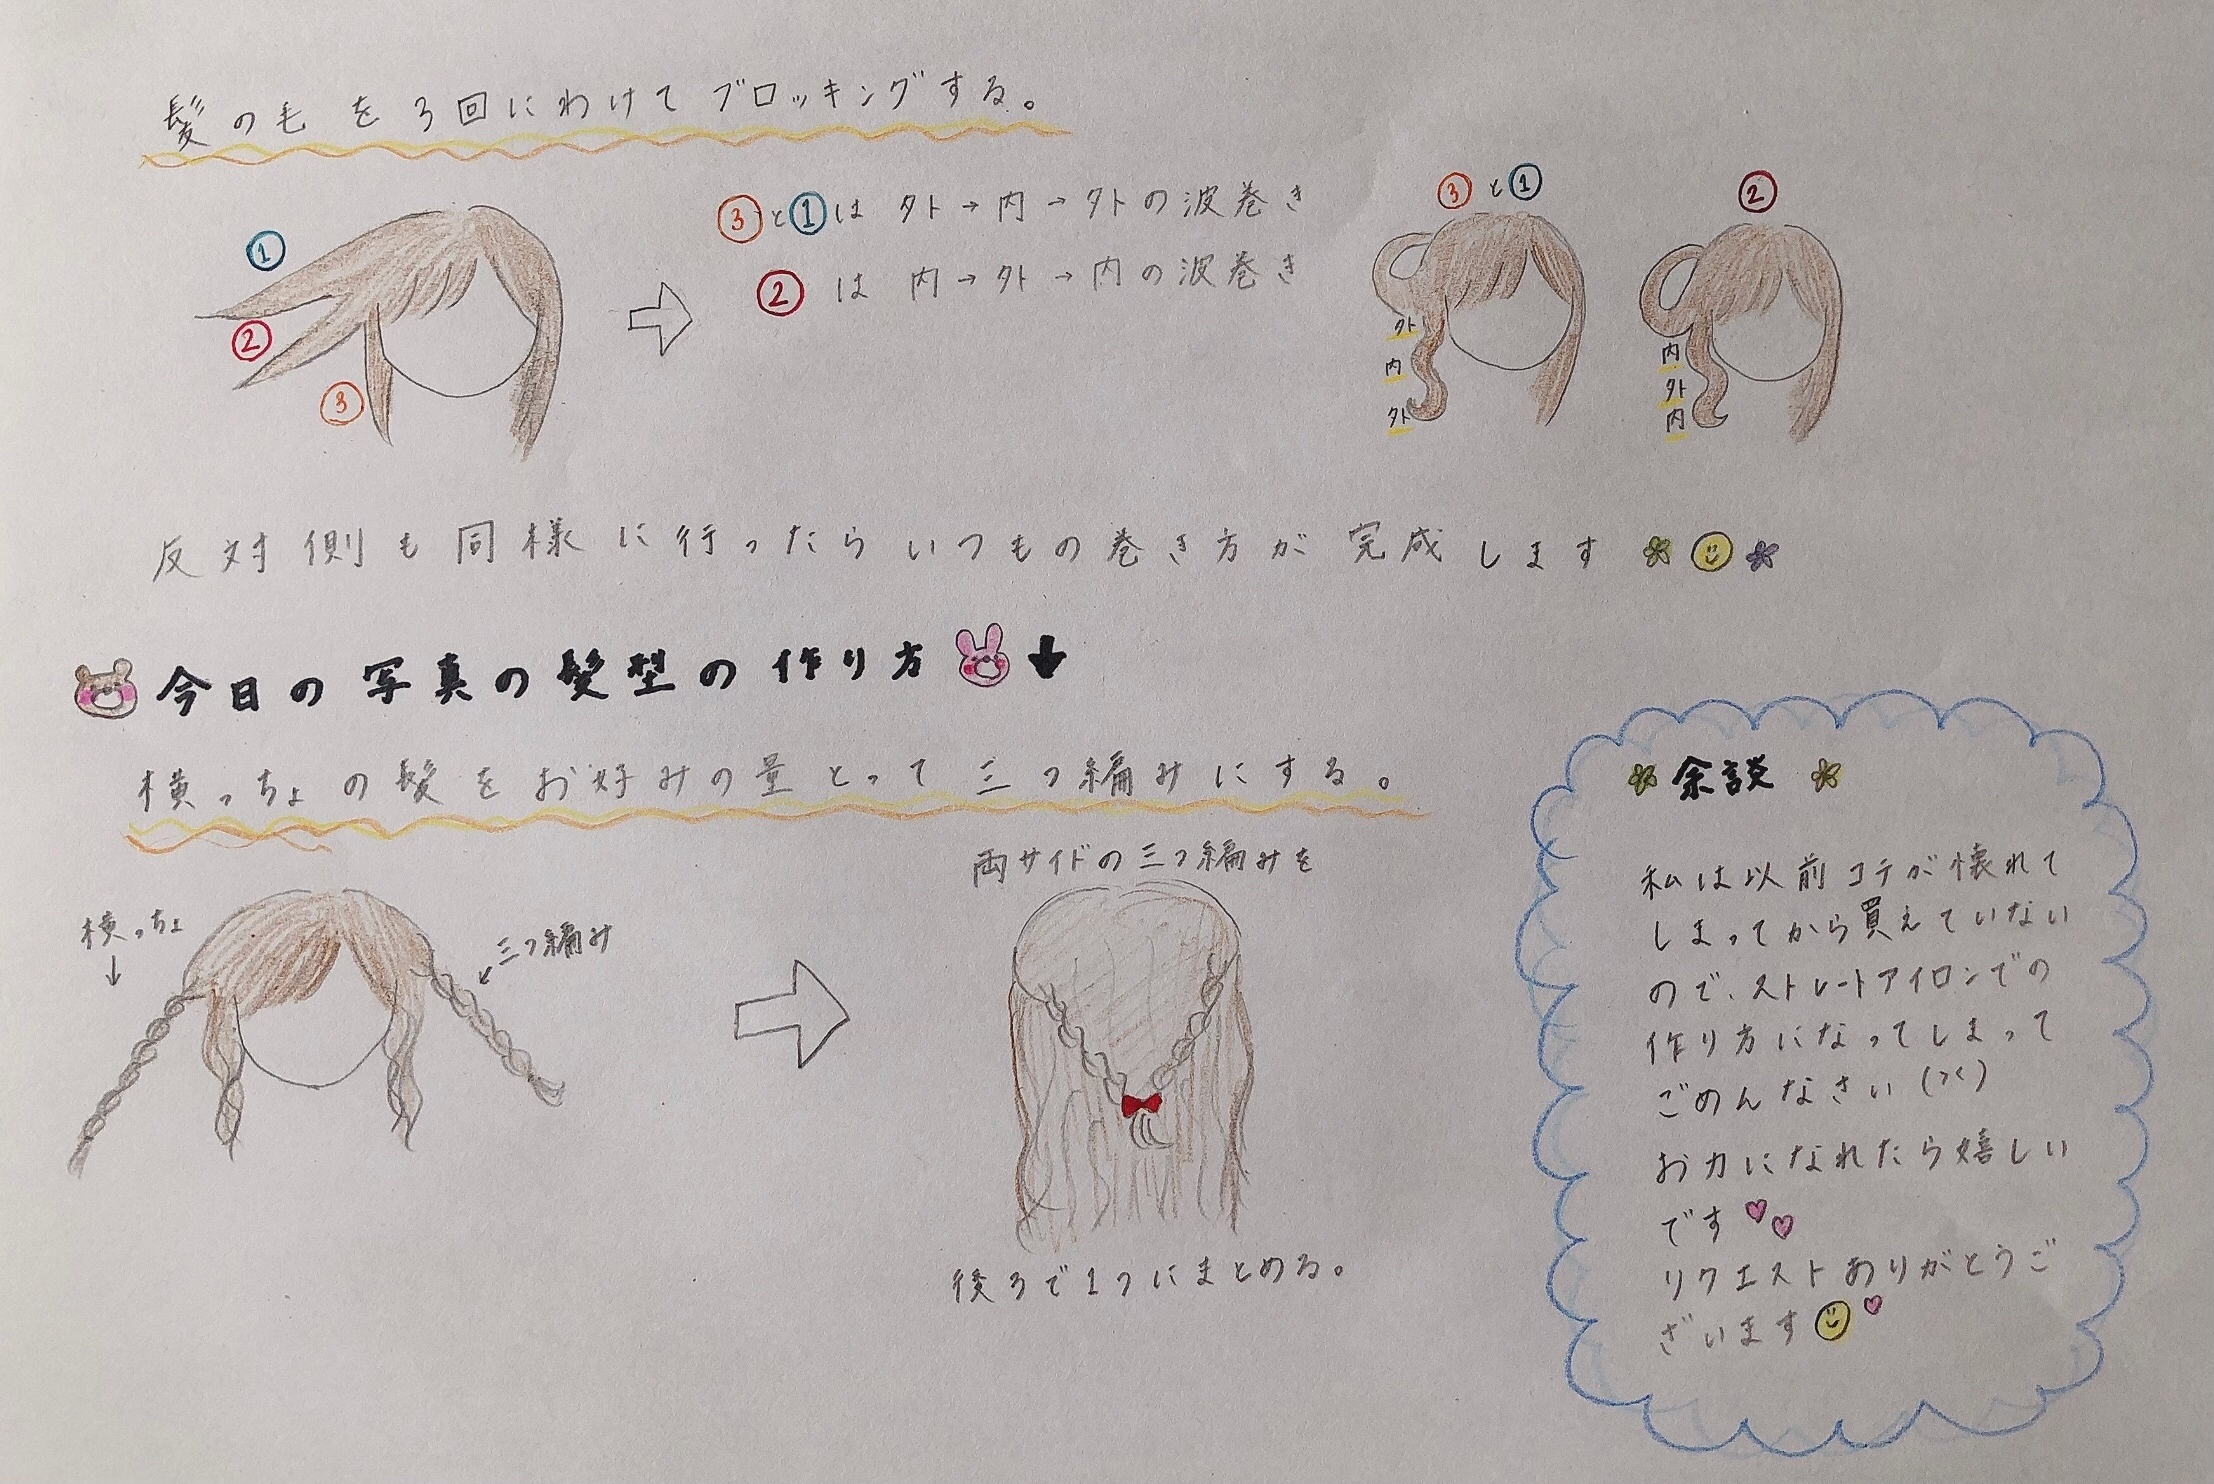 髪の毛を3回にわけてブロッキングする。
①
②
③
③と①は 外→内→外の波巻き
②は 内→外→内の波巻き
③と①
外
内
外
②
内
外
内
反対側も同様に行ったらいつもの巻き方が完成します
今日の写真の髪型の作り方
横っちょの髪をお好みの量とって三つ編みにする。
横っちょ
三つ編み
両サイドの三つ編みを
後ろで1つにまとめる。
余談
私は以前コテが懐れて
しまってから買えていない
ので、ストレートアイロンでの
作り方になってしまって
ごめんなさい(><)
お力になれたら嬉しい
です
リクエストありがとうご
ざいます